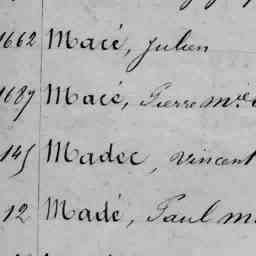 1662 Macé, Julien
1687 Macé, Pierre M.ie
145 Madec, Vincent
12 Madé, Paul M